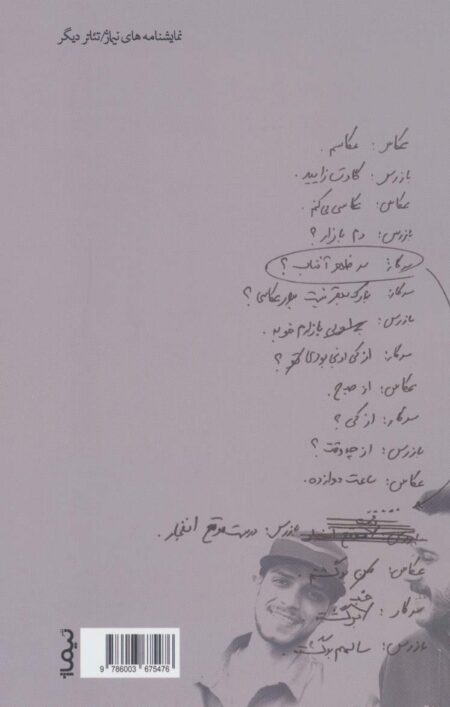 نمایشنامه‌های نیماژ/تئاتر دیگر
عکاس: عکاسم.
بازرس: کادت زایید.
عکاس: عکاسی می‌کنم.
بازرس: دم بازار؟
سرکار: سر ظهر آفتاب؟
سرکار: پارک بهتر نیست برای عکاسی؟
بازرس: بازارم خوبه.
سرکار: از کی اونجا بودی گفتی؟
عکاس: از صبح.
سرکار: از کی؟
بازرس: از چه وقت؟
عکاس: ساعت دوازده.
بازرس: درست موقع انفجار.
عکاس:
سرکار:
بازرس: سالمم برگشته.
نیماژ
9 786003 675476